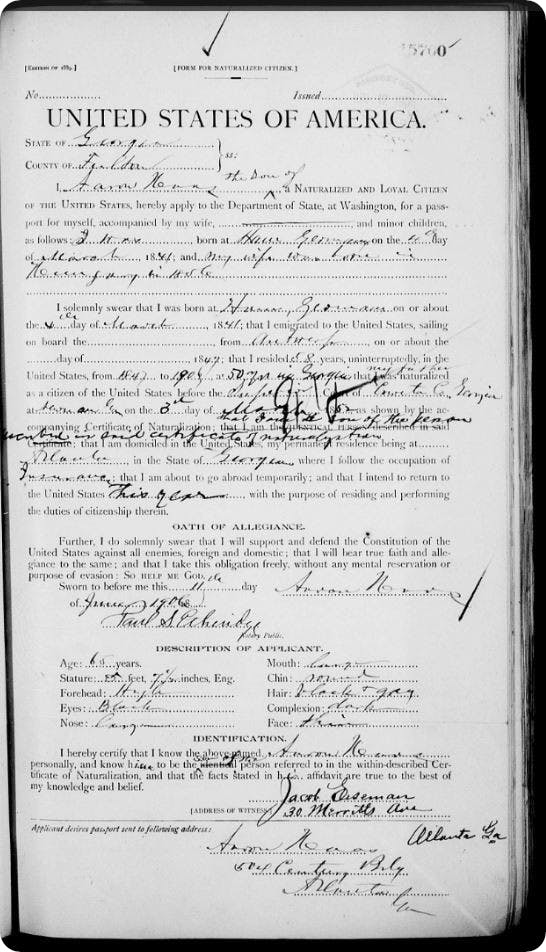 15700
[EDITION OF 1889.] [FORM FOR NATURALIZED CITIZEN.]
No. Issued
UNITED STATES OF AMERICA.
STATE OF Georgia
COUNTY OF Fulton ss:
the Son of
I, Aaron Haas, a NATURALIZED AND LOYAL CITIZEN
OF THE UNITED STATES, hereby apply to the Department of State, at Washington, for a pass-
port for myself, accompanied by my wife, and minor children,
as follows: born at Germany on the Day
of March, 1841; and my wife was born in
in
I solemnly swear that I was born at Germany on or about
the day of March, 1841; that I emigrated to the United States, sailing
on board the from on or about the
day of 1847; that I resided 58 years, uninterruptedly, in the
United States, from 1847 to 1906 at 50 yrs in Georgia that my father was naturalized
as a citizen of the United States before the Court of Coweta Co. Georgia
at Newnan Ga on the 3rd day of as shown by the ac-
companying Certificate of Naturalization; that I am the son of the person
described in said certificate of naturalization
; that I am domiciled in the United States, my permanent residence being at
Atlanta, in the State of Georgia where I follow the occupation of
; that I am about to go abroad temporarily; and that I intend to return to
the United States this year with the purpose of residing and performing
the duties of citizenship therein.
OATH OF ALLEGIANCE.
Further, I do solemnly swear that I will support and defend the Constitution of the
United States against all enemies, foreign and domestic; that I will bear true faith and alle-
giance to the same; and that I take this obligation freely, without any mental reservation or
purpose of evasion: SO HELP ME GOD.
Sworn to before me this 11 day Aaron Haas
of 1906
Paul S Etheridge
Notary Public.
DESCRIPTION OF APPLICANT.
Age: 65 years. Mouth: large
Stature: 5 feet, 7½ inches, Eng. Chin: round
Forehead: High Hair: black & gray
Eyes: Black Complexion: dark
Nose: Large Face: thin
IDENTIFICATION.
I hereby certify that I know the above named Aaron Haas
personally, and know him to be the identical person referred to in the within-described Cer-
tificate of Naturalization, and that the facts stated in his affidavit are true to the best of
my knowledge and belief.
Jacob Eiseman
[ADDRESS OF WITNESS] 30 Merritts Ave
Atlanta Ga
Applicant desires passport sent to following address:
Aaron Haas
504 Century Bldg
Atlanta
Ga